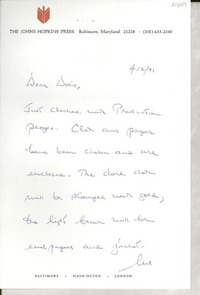 THE JOHNS HOPKINS PRESS Baltimore, Maryland 21218 • (301) 433-2100
Dear Doris,
Just checked with Production
people. Cloth and paper
have been chosen and are
enclosed. The dark cloth
will be stamped with gold,
the light brown will be
endpapers and jacket.
BALTIMORE • WASHINGTON • LONDON